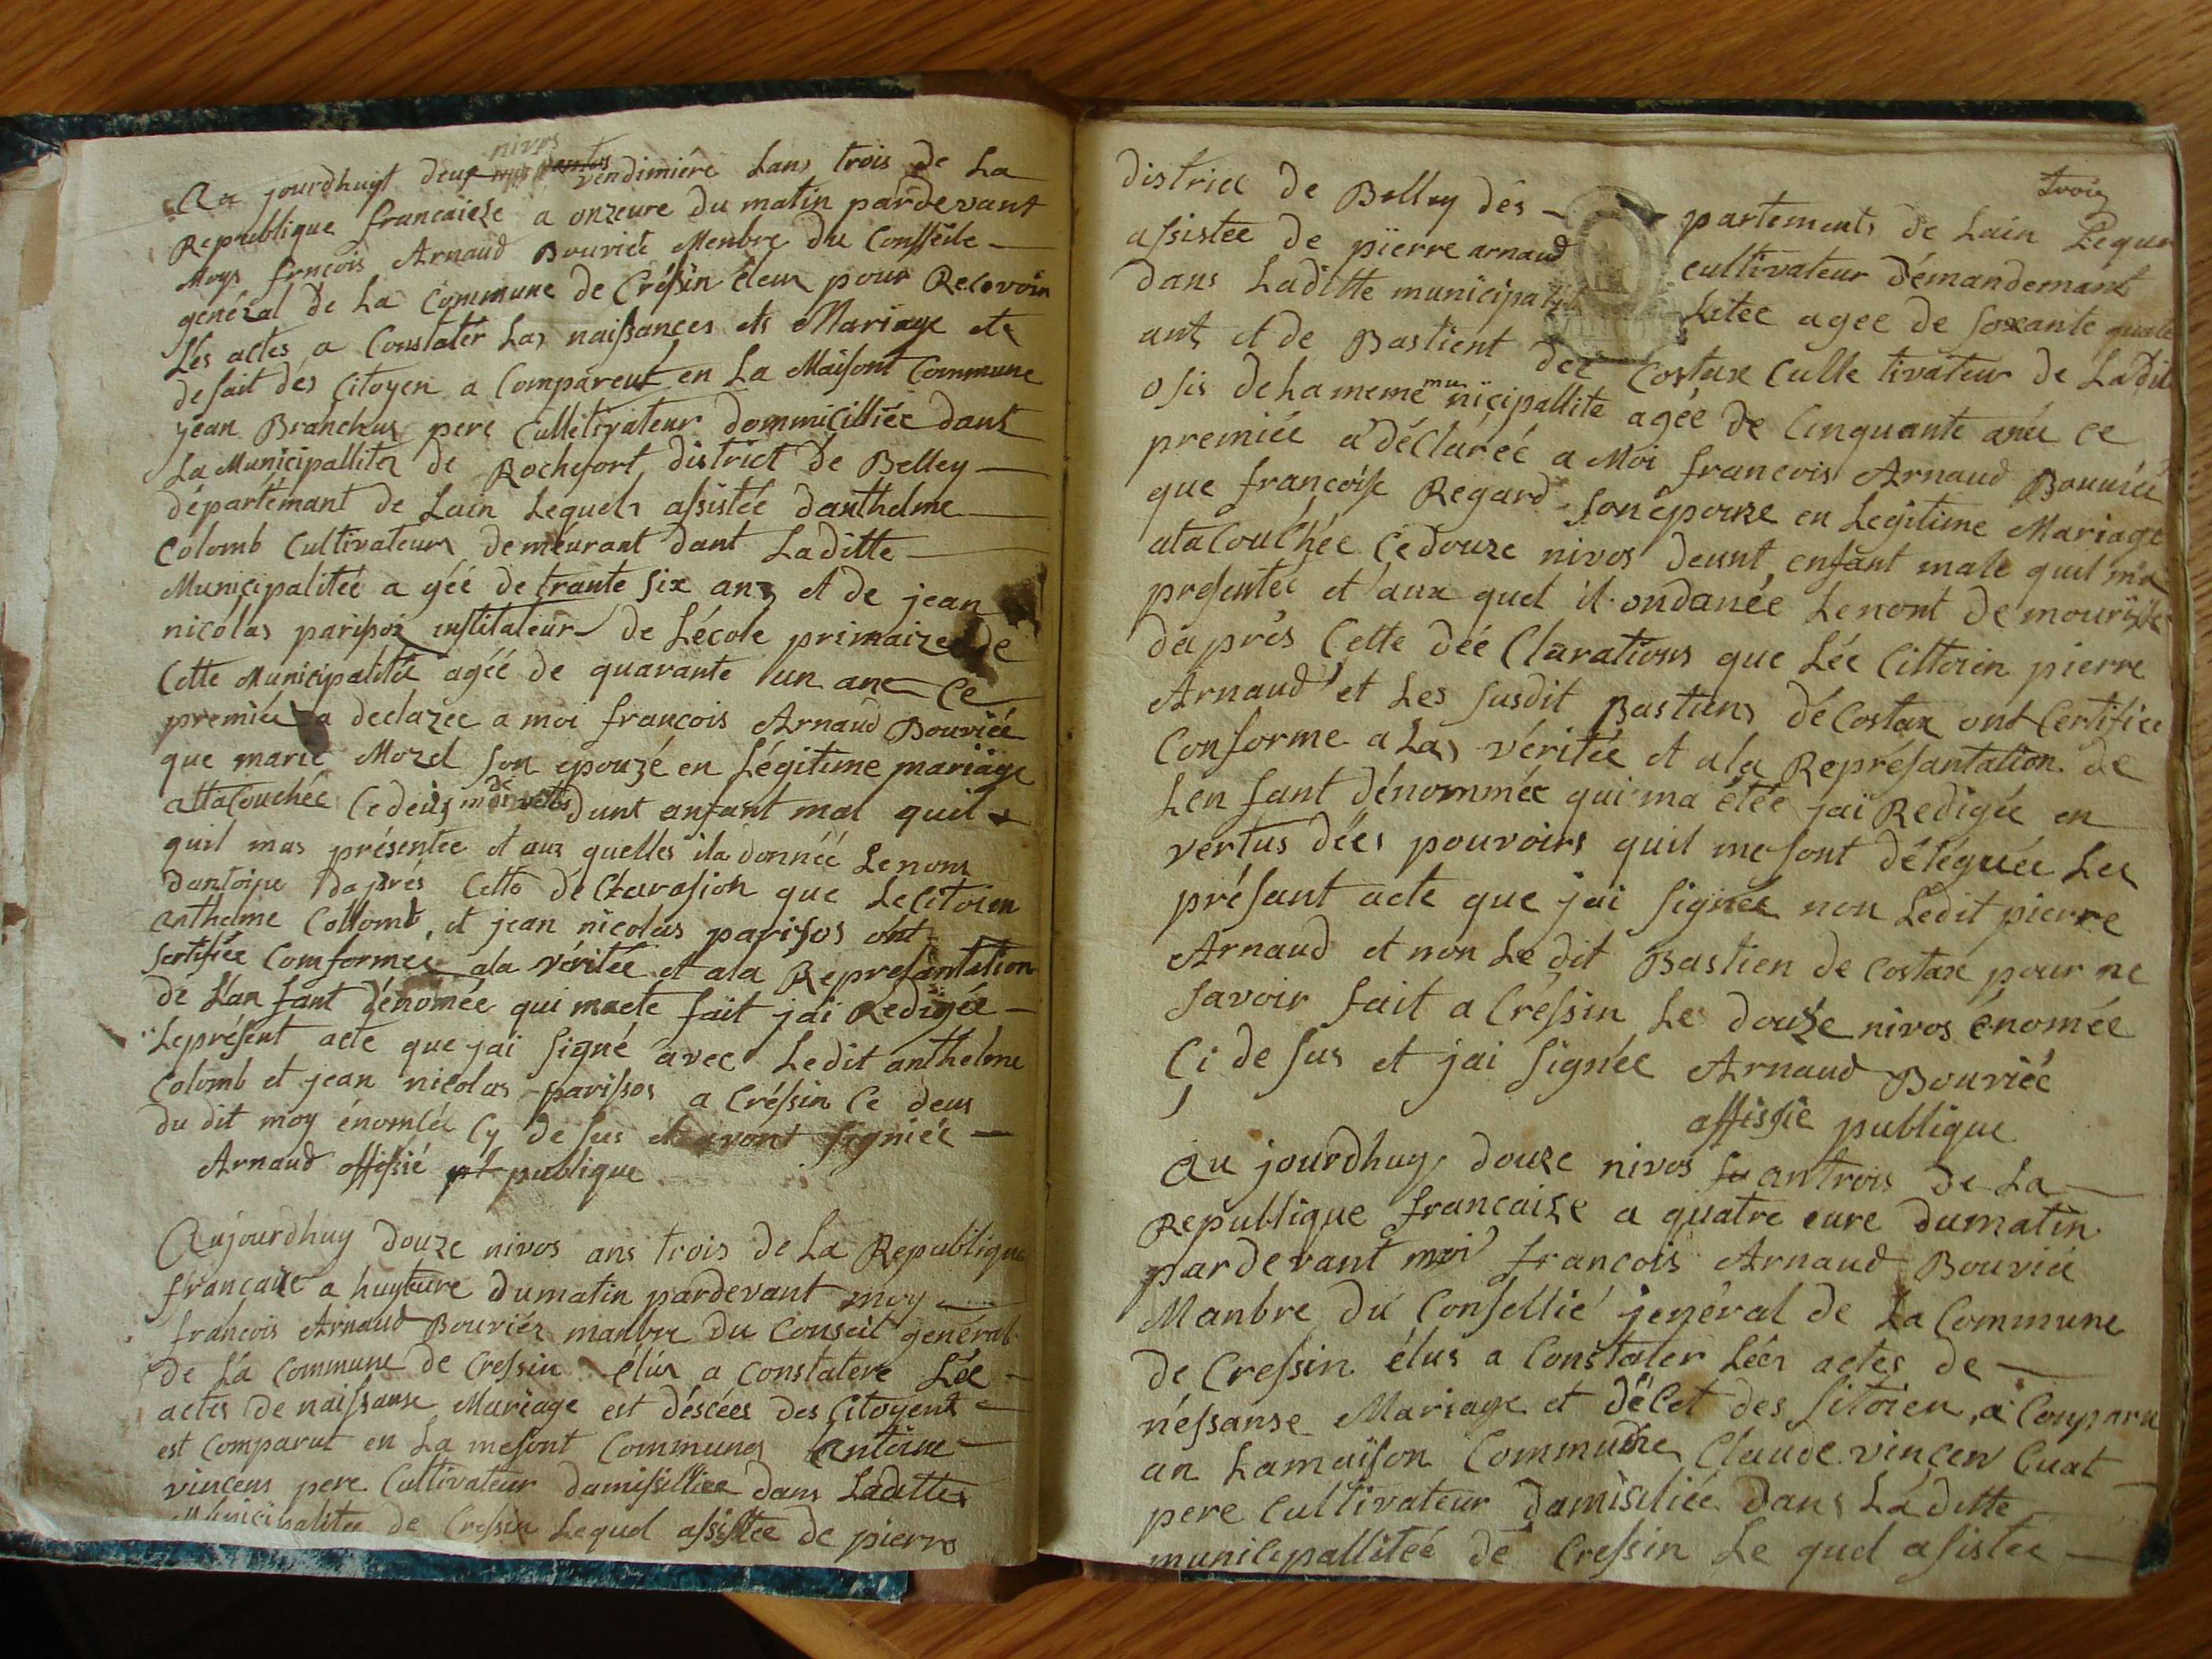 nivos
Au jourdhuyt deux vendimiére Lans trois de La
Republique francaieze a onzeure du matin pardevant
Moys francois Arnaud Bouviée Menbre du Consseile
genéral de La Commune de Créssin éleux pour Recevoir
Les actes a Constater Las naissances ets Mariage ete
desait des Citoyen a Compareut en La Maisont Commune
jean Branchus pere Culletivateur dommicilliée dant
La Municipallites de Rochefort district de Belley
départemant de Lain Lequels assistée danthelme
Colomb Cultivateurs demeurant dant Laditte
Municipalitée a géé de trante six ans et de jean
nicolas parisos institateur de Lécole primaize de
Cette Municipalitée agéé de quarante un ane Ce
premiée a declazée a moi francois Arnaud Bouviée
que marie Mozel son epouzé en Légitime mariage
attacouchée Cedeus dunt anfant mal quil
quil mas présentée et aux quelles ila donnéé Lenom
dantoine daprés Cette déClarasion que LeCitoien
anthelme Collomb, et jean nicolas parisos ont
sertifiée Comformée ala véritée et ala Represantation
de Lan fant dénomée qui maete fait jai Redigée
Leprésent acte que jai signé avec Ledit anthelme
Colomb et jean nicolas parissos a Créssin Ce deus
du dit moy énomlée Cy desus et avont signiée
Arnaud offissié publique
Aujourdhuy douze nivos ans trois de La Republique
francaize a huyteure dumatin pardevant moy
francois Arnaud Bouviéz manbre du Conseil général
de La Commune de Cressin élus a Constatere Lée
actes de naissanse Mariage est déscées des Citoyent
est Comparut en La mesont Communes antoine
vincens pere Cultivateur damisilliee dans Ladittes
Municipalitee de Cressin Lequel assistee de pierre
troiz
district de Belley dés partements de Lain Lequel
assistee de pierre arnaud cultivateur démandemant
dans Laditte municipal Litee agee de soxante quatre
ant et de Bastient dee Costax Culle tivateur de Ladit
osis deLameme municipallite agée de Cinquante anée ce
premiée a déclaréé a Moi francois Arnaud Bouviée
que francoise Regard son épouze en Legitime Mariage
atacouchée Cedouze nivos deunt enfant male quil ma
presentée et aux quel il ondanée Lenont de mourisse
daprés Cette dée Clarations que Lée Cittoien pierre
Arnaud et Les susdit Bastiens déCostax ont Certifiée
Conforme a Las véritée et ala Représantation de
Len fant dénommée qui ma étée jai Redigée en
vertus dées pouvoirs quil mesont déléguée Les
présant acte que jai signée non Ledit pierre
Arnaud et non Le dit Bastien de Costax pour ne
savoir fait a Créssin Le douze nivos énomée
Ci desus et jai signée Arnaud Bouviée
affissie publique
Au jourdhuy douze nivos antrois de La
Republique francaize a quatre eure dumatin
pardevant moi francois Arnaud Bouviée
Manbre du Consellié jenéral de La Commune
de Cressin élus a Constater Lées actes de
néssanse Mariage et déCet des sitoien, a Comparu
an Lamaison Commune Claude vincen Cuat
pere Cultivateur damisiliée dans Laditte
municipallitéé de Cressin Le quel asistee